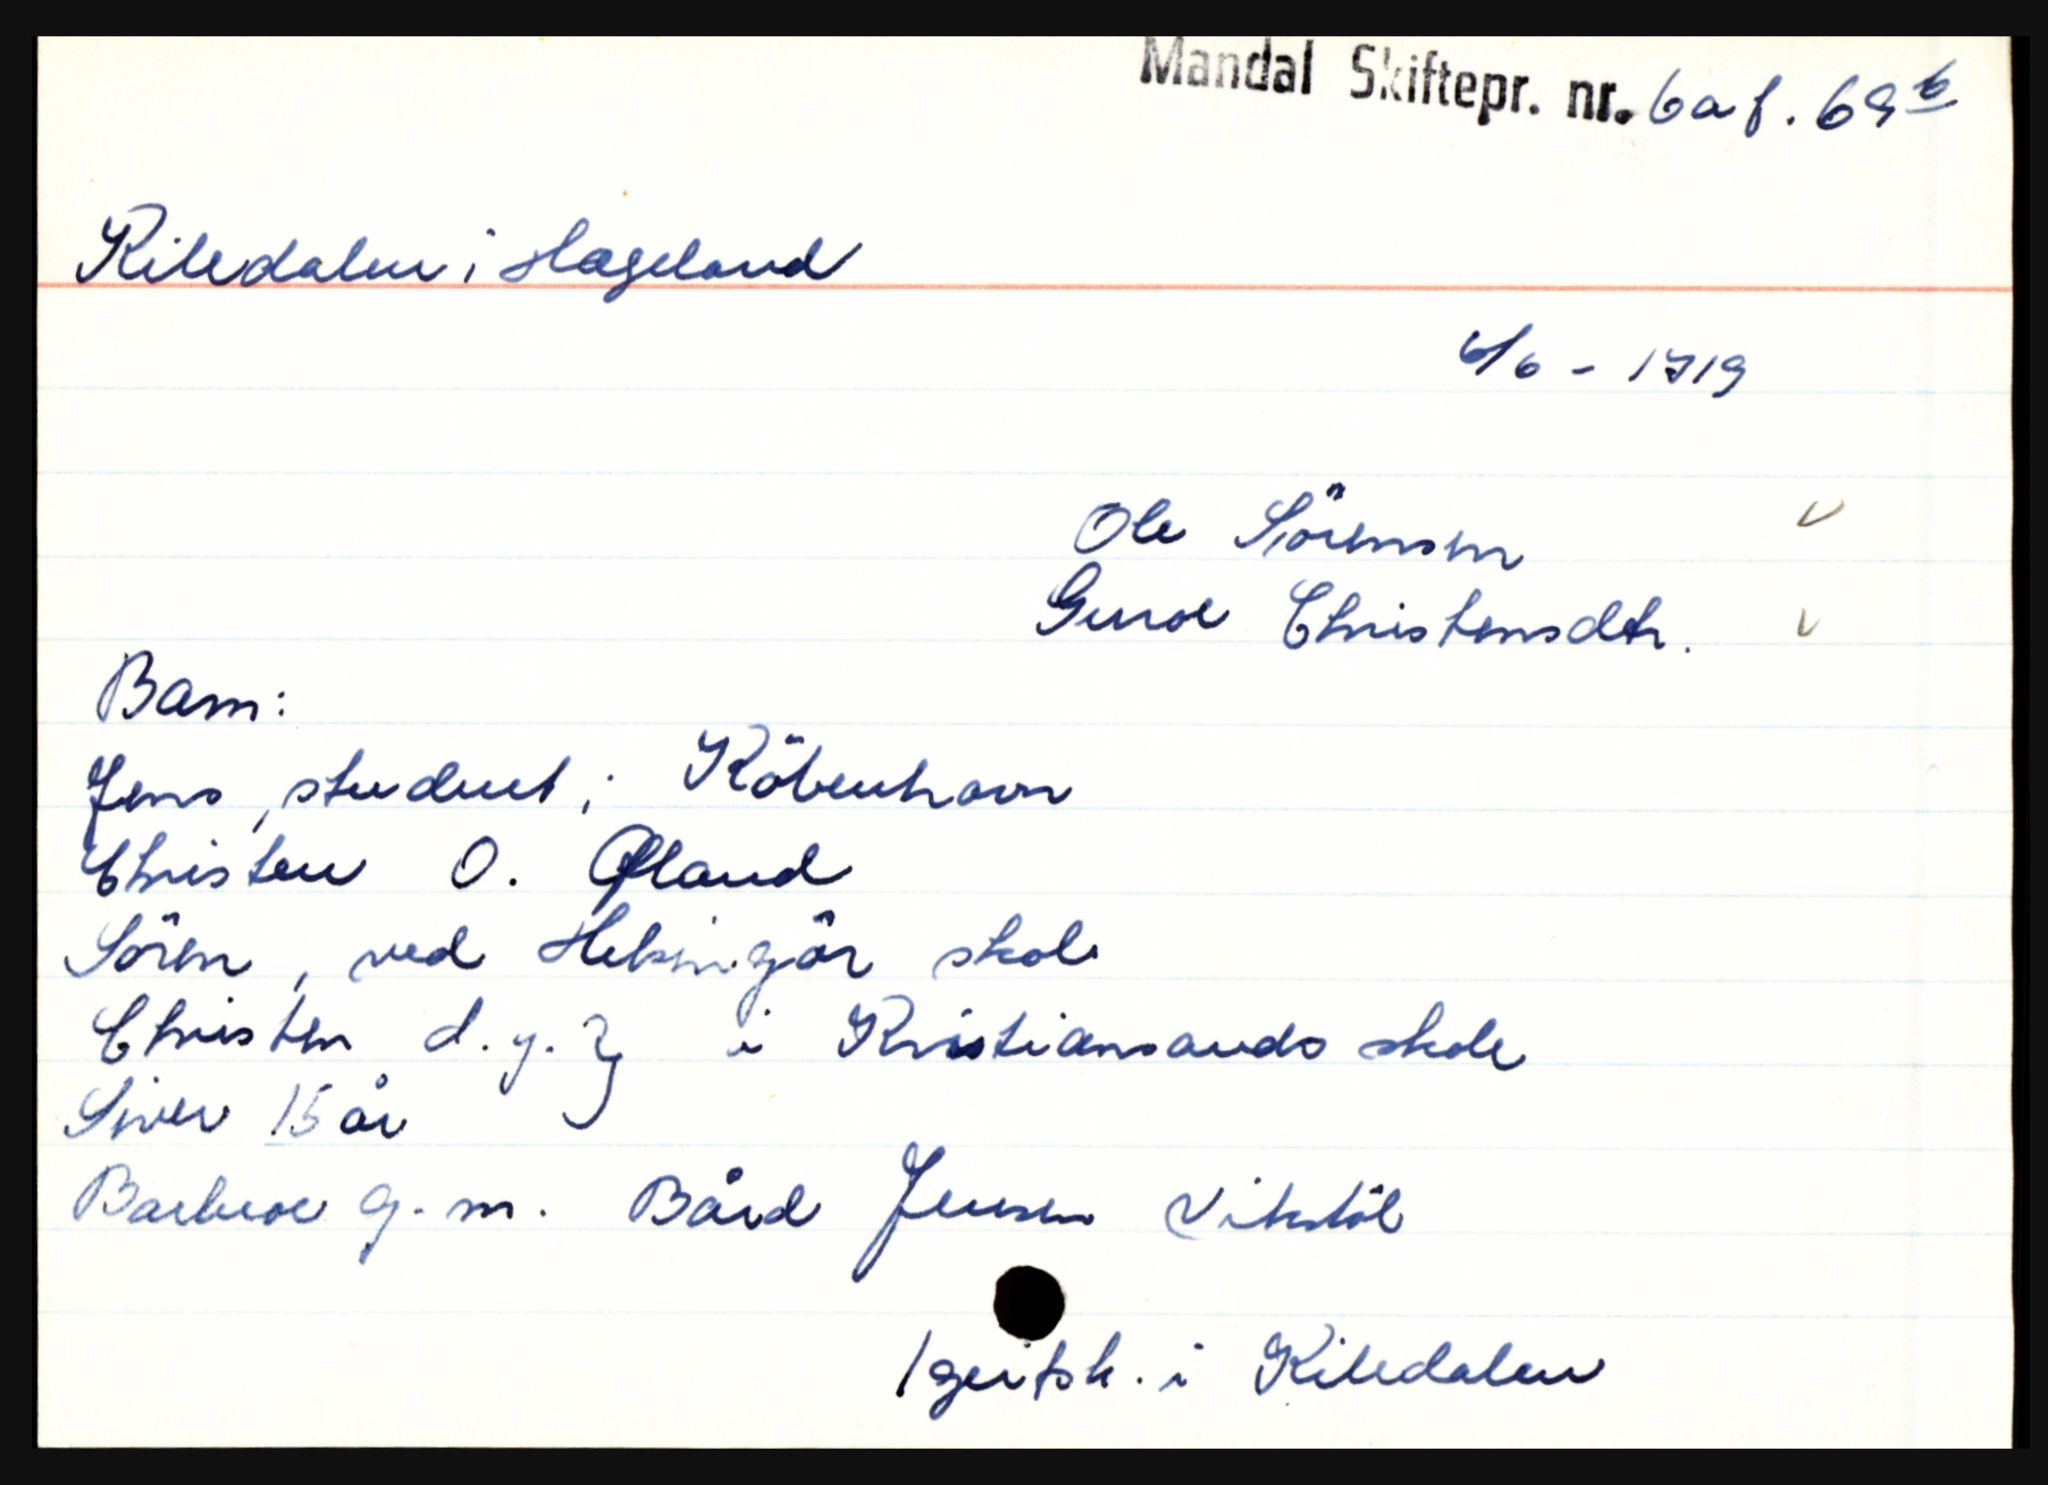 Mandal Skiftepr. nr. 6a f. 69b
Kiledalen i Hægeland
6/6 - 1719
Ole Sörensen
Guroe Christensdtr.
Barn:
Jens, student i Köbenhavn
Christen O. Øfland
Sören, ved Helsingör skole
Christen d.y. i Kristiansands skole
Siver 15 år
Barbroe g.m. Bård Jensen Vikstöl
1 geitsk. i Kiledalen